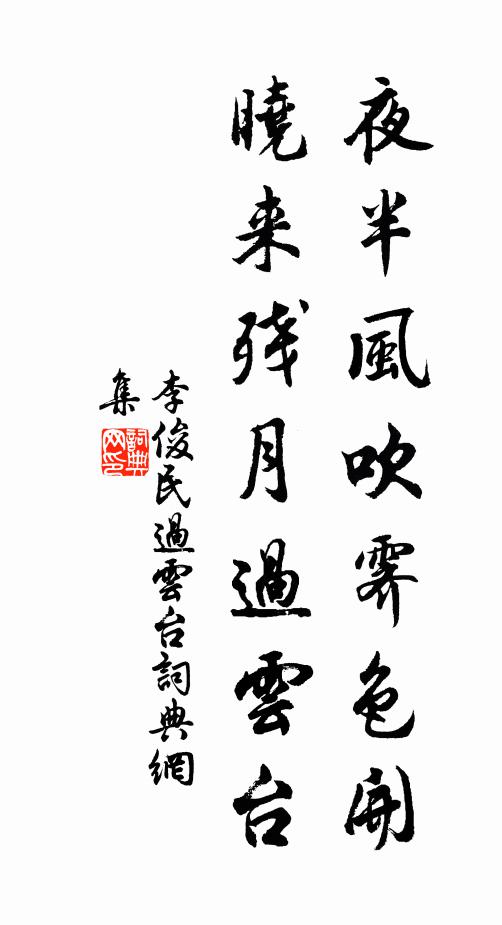 夜半風吹霽色開
曉来残月過雲台
李俊民過雲台詞典網
集
詞典网印